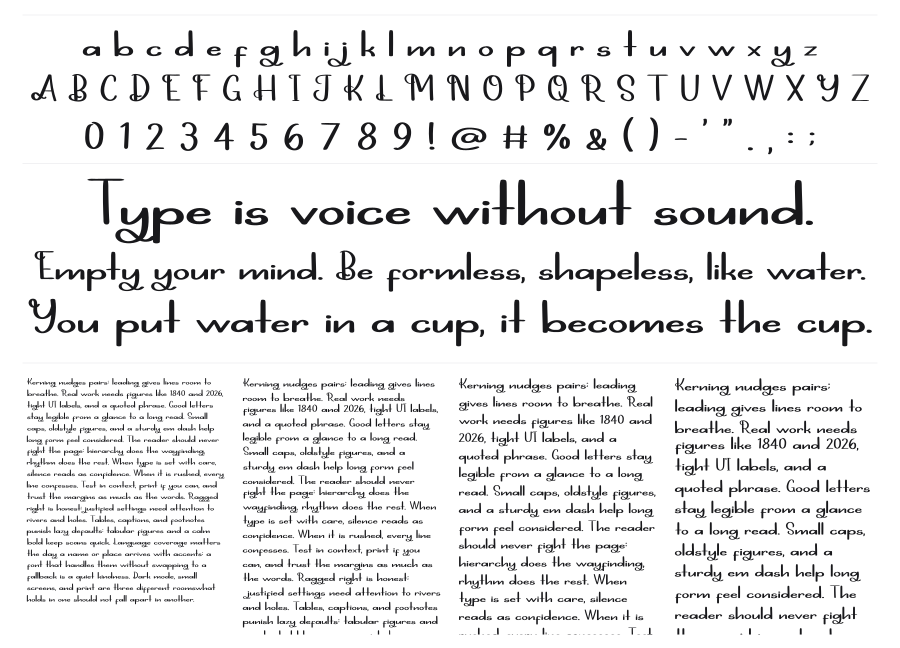 a b c d e f g h i j k l m n o p q r s t u v w x y z
A B C D E F G H I J K L M N O P Q R S T U V W X Y Z
0 1 2 3 4 5 6 7 8 9 ! @ # % & ( ) - ' " . , : ;
Type is voice without sound.
Empty your mind. Be formless, shapeless, like water.
You put water in a cup, it becomes the cup.
Kerning nudges pairs: leading gives lines room to
breathe. Real work needs figures like 1840 and 2026,
tight UI labels, and a quoted phrase. Good letters
stay legible from a glance to a long read. Small
caps, oldstyle figures, and a sturdy em dash help
long form feel considered. The reader should never
fight the page: hierarchy does the wayfinding,
rhythm does the rest. When type is set with care,
silence reads as confidence. When it is rushed, every
line confesses. Test in context, print if you can, and
trust the margins as much as the words. Ragged
right is honest: justified settings need attention to
rivers and holes. Tables, captions, and footnotes
punish lazy defaults: tabular figures and a calm
bold keep scans quick. Language coverage matters
the day a name or place arrives with accents: a
font that handles them without swapping to a
fallback is a quiet kindness. Dark mode, small
screens, and print are three different rooms: what
holds in one should not fall apart in another.
Kerning nudges pairs: leading gives lines
room to breathe. Real work needs
figures like 1840 and 2026, tight UI labels,
and a quoted phrase. Good letters stay
legible from a glance to a long read.
Small caps, oldstyle figures, and a
sturdy em dash help long form feel
considered. The reader should never
fight the page: hierarchy does the
wayfinding, rhythm does the rest. When
type is set with care, silence reads as
confidence. When it is rushed, every line
confesses. Test in context, print if you
can, and trust the margins as much as
the words. Ragged right is honest:
justified settings need attention to rivers
and holes. Tables, captions, and footnotes
punish lazy defaults: tabular figures and
Kerning nudges pairs: leading
gives lines room to breathe. Real
work needs figures like 1840 and
2026, tight UI labels, and a
quoted phrase. Good letters stay
legible from a glance to a long
read. Small caps, oldstyle figures,
and a sturdy em dash help long
form feel considered. The reader
should never fight the page:
hierarchy does the wayfinding,
rhythm does the rest. When
type is set with care, silence
reads as confidence. When it is
Kerning nudges pairs:
leading gives lines room to
breathe. Real work needs
figures like 1840 and 2026,
tight UI labels, and a
quoted phrase. Good letters
stay legible from a glance
to a long read. Small caps,
oldstyle figures, and a
sturdy em dash help long
form feel considered. The
reader should never fight